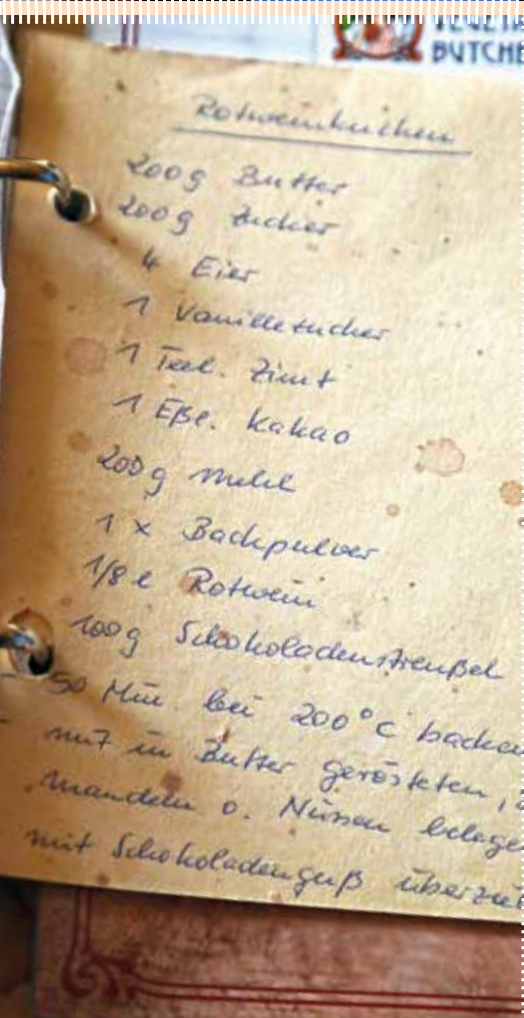 BUTCHE
Rotweinkuchen
200g Butter
200g Zucker
4 Eier
1 Vanillezucker
1 Teel. Zimt
1 Eßl. Kakao
200g Mehl
1 x Backpulver
1/8 l Rotwein
100g Schokoladenstreußel
- 50 Min. bei 200°C backen
- mit in Butter gerösteten,
Mandeln o. Nüssen belege
mit Schokoladenguß überzie